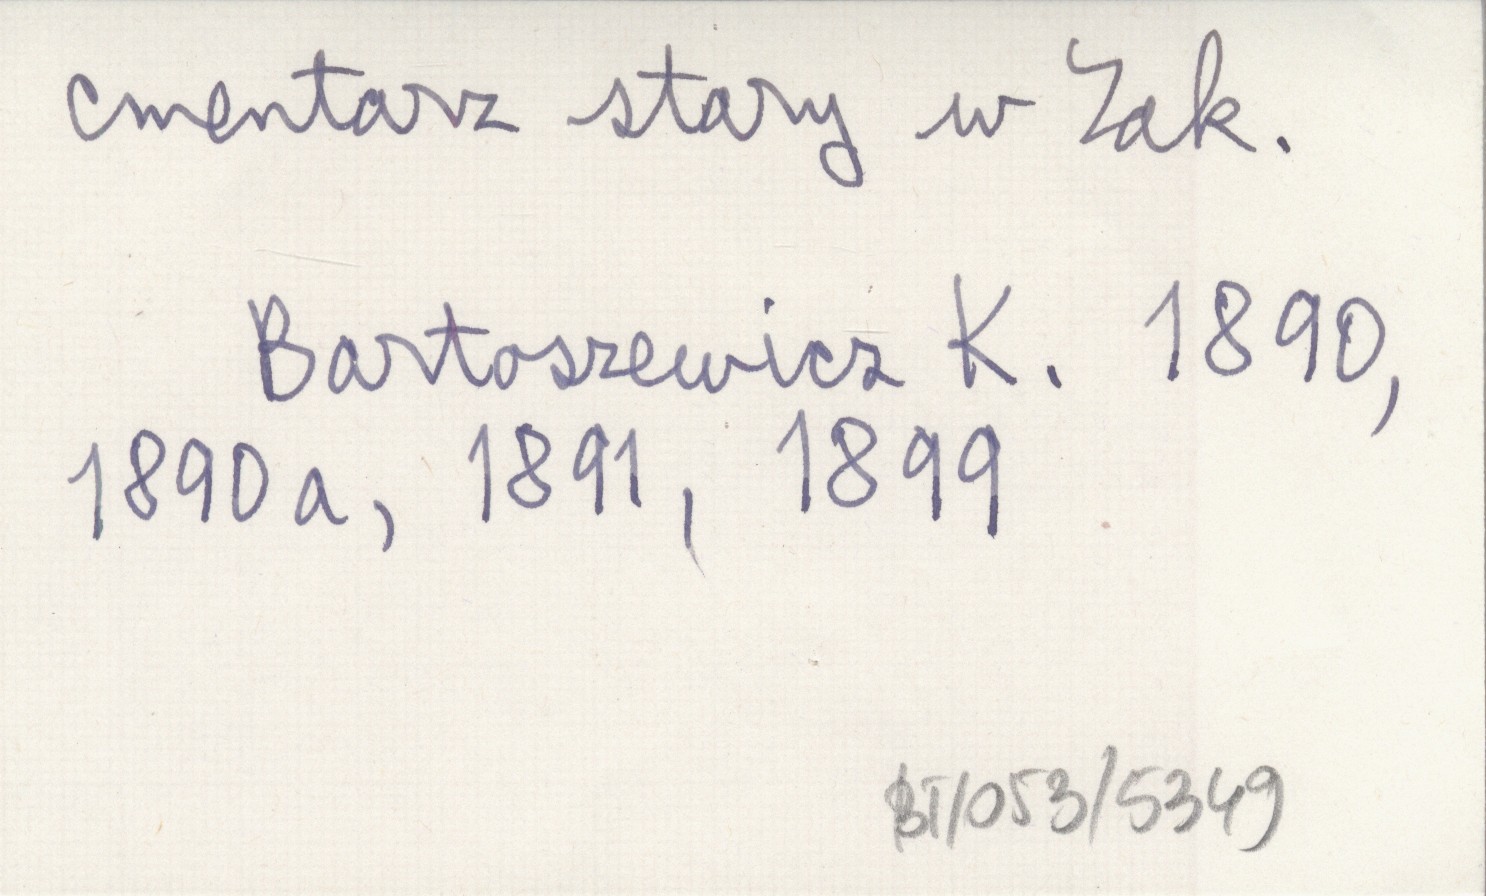 cmentarz stary w Zak.
Bartoszewicz K. 1890,
1890a, 1891, 1899
BT/053/5349